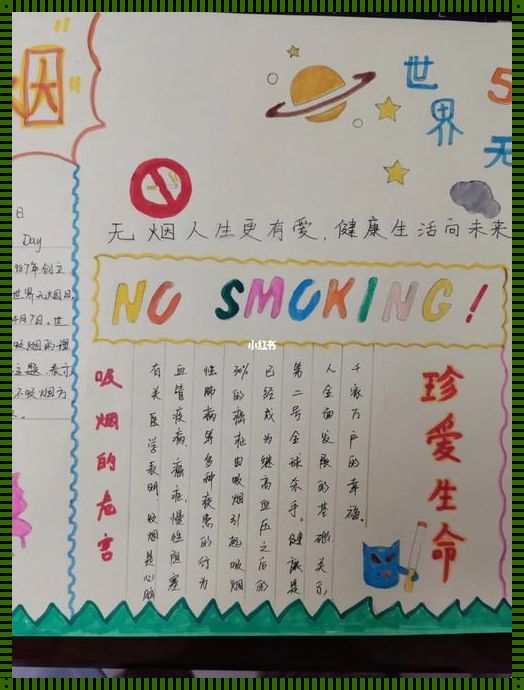 烟
日
Day
987年创立
世界无烟日
4月7日。世
不吸烟方
世界
5
无
无烟人生更有爱,健康生活向未来
NO SMOKING!
小红书
吸烟的危害
有关医学表明,吸烟是心脑
血管疾病、癌症、慢性阻塞
性肺病等多种疾患的行为
30%的癌症由吸烟引起吸烟
已经成为继高血压之后的
第二号全球杀手。健康是
人全面发展的基础关系
千家万户的幸福。
珍爱生命